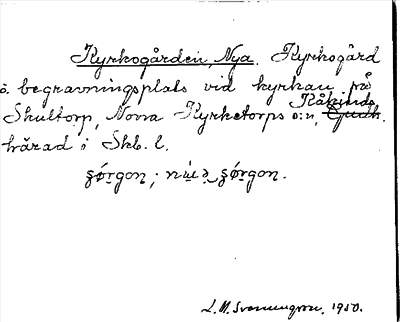 Kyrkogården, Nya. Kyrkogård
o. begravningsplats vid kyrkan på
Skultorp, Norra Kyrketorps s:n, Kåkinds
härad i Skb. l.
L. M. Svennungsson, 1950.